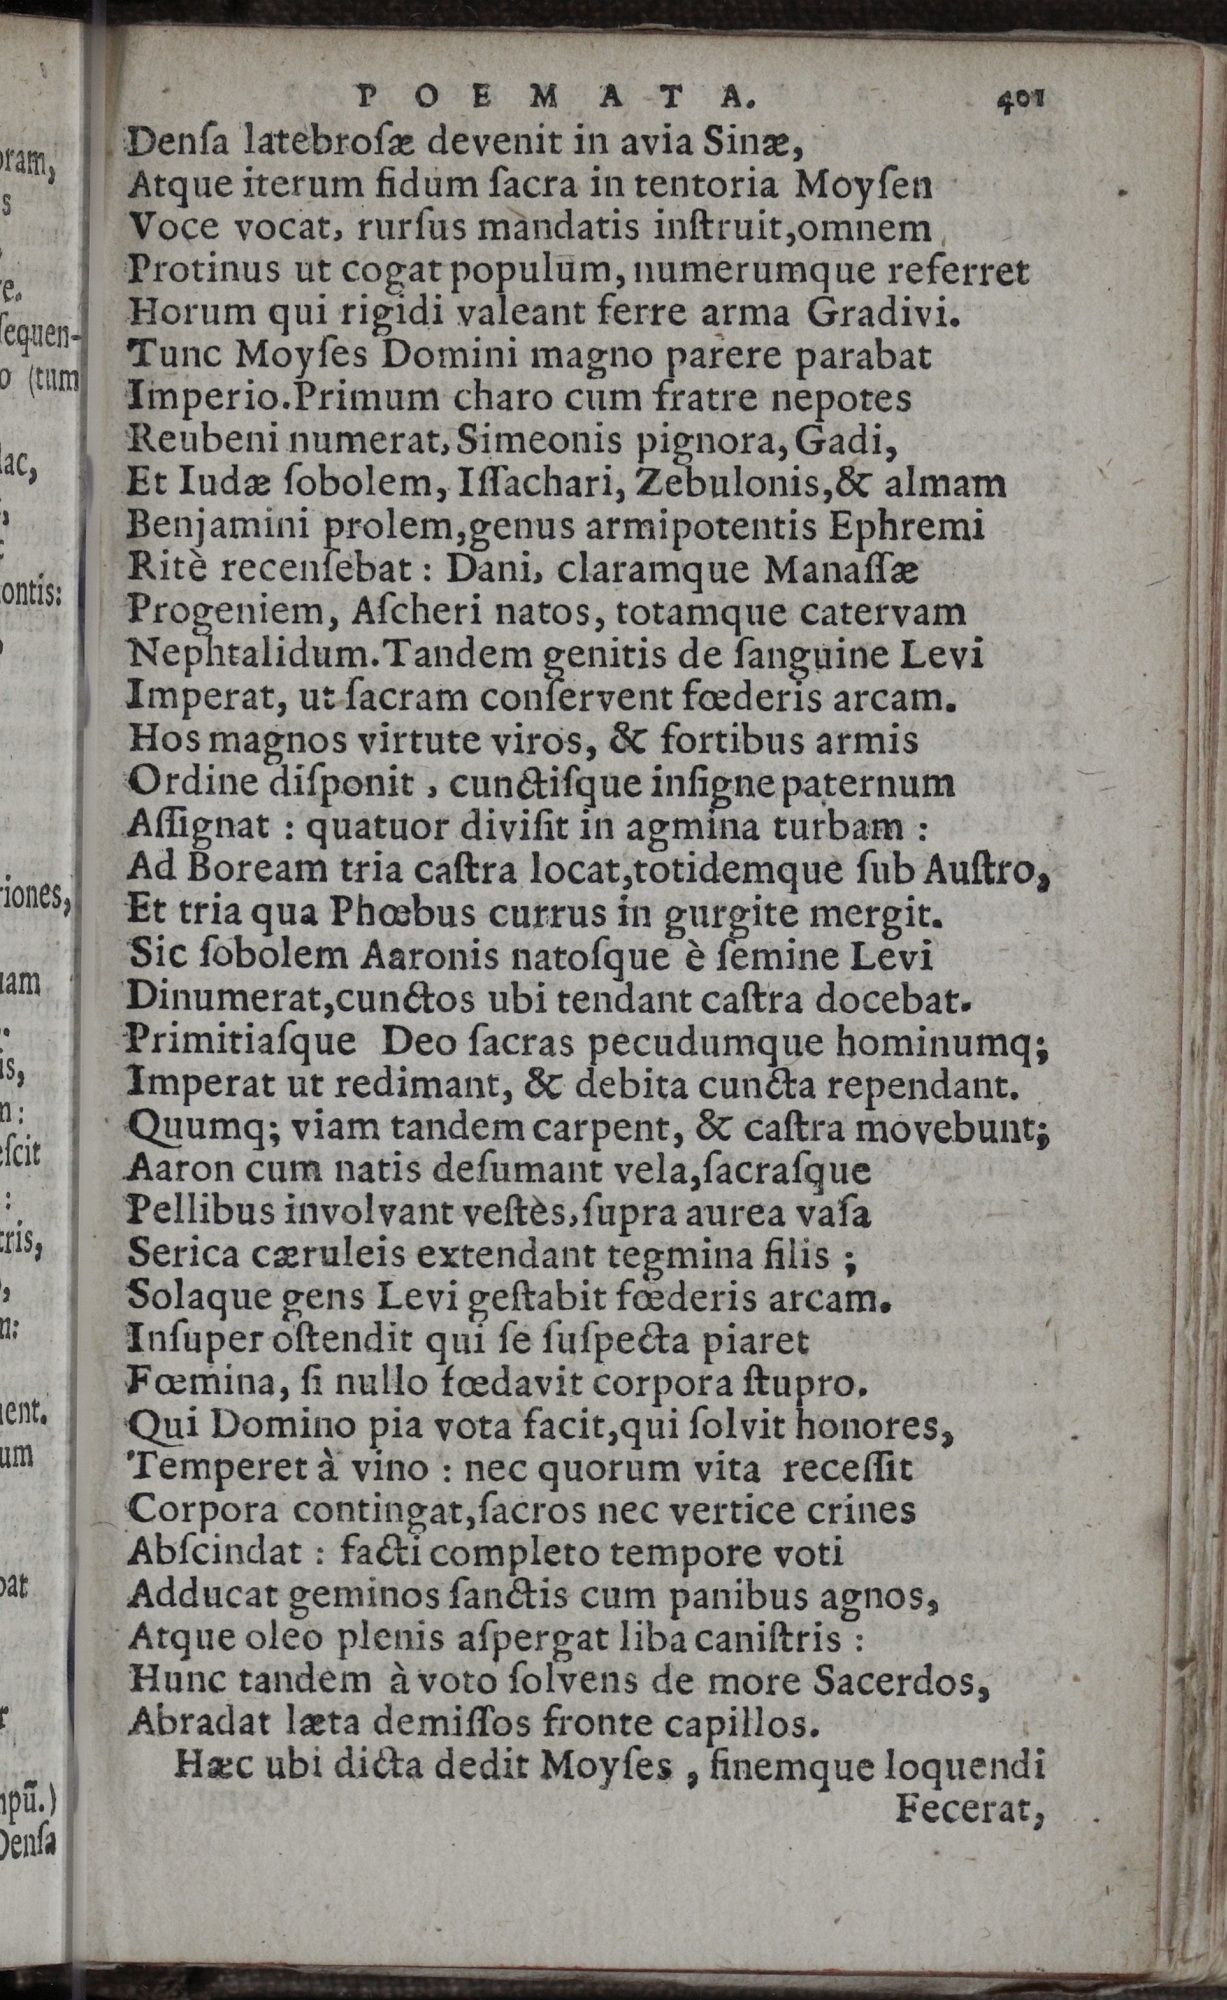 POEMATA. 401
Denſa latebroſæ devenit in avia Sinæ,
Atque iterum fidum ſacra in tentoria Moyſen
Voce vocat, rurſus mandatis inſtruit, omnem
Protinus ut cogat populum, numerumque referret
Horum qui rigidi valeant ferre arma Gradivi.
Tunc Moyſes Domini magno parere parabat
Imperio. Primum charo cum fratre nepotes
Reubeni numerat, Simeonis pignora, Gadi,
Et Iudæ ſobolem, Iſſachari, Zebulonis, & almam
Benjamini prolem, genus armipotentis Ephremi
Ritè recenſebat : Dani, claramque Manaſſæ
Progeniem, Aſcheri natos, totamque catervam
Nephtalidum. Tandem genitis de ſanguine Levi
Imperat, ut ſacram conſervent fœderis arcam.
Hos magnos virtute viros, & fortibus armis
Ordine diſponit, cunctiſque inſigne paternum
Aſſignat : quatuor diviſit in agmina turbam :
Ad Boream tria caſtra locat, totidemque ſub Auſtro,
Et tria qua Phœbus currus in gurgite mergit.
Sic ſobolem Aaronis natoſque è ſemine Levi
Dinumerat, cunctos ubi tendant caſtra docebat.
Primitiaſque Deo ſacras pecudumque hominumq;
Imperat ut redimant, & debita cuncta rependant.
Quumq; viam tandem carpent, & caſtra movebunt;
Aaron cum natis deſumant vela, ſacraſque
Pellibus involvant veſtes, ſupra aurea vaſa
Serica cæruleis extendant tegmina filis ;
Solaque gens Levi geſtabit fœderis arcam.
Inſuper oſtendit qui ſe ſuſpecta piaret
Fœmina, ſi nullo fœdavit corpora ſtupro.
Qui Domino pia vota facit, qui ſolvit honores,
Temperet à vino : nec quorum vita receſſit
Corpora contingat, ſacros nec vertice crines
Abſcindat : facti completo tempore voti
Adducat geminos ſanctis cum panibus agnos,
Atque oleo plenis aſpergat liba caniſtris :
Hunc tandem à voto ſolvens de more Sacerdos,
Abradat læta demiſſos fronte capillos.
Hæc ubi dicta dedit Moyſes, finemque loquendi
Fecerat,